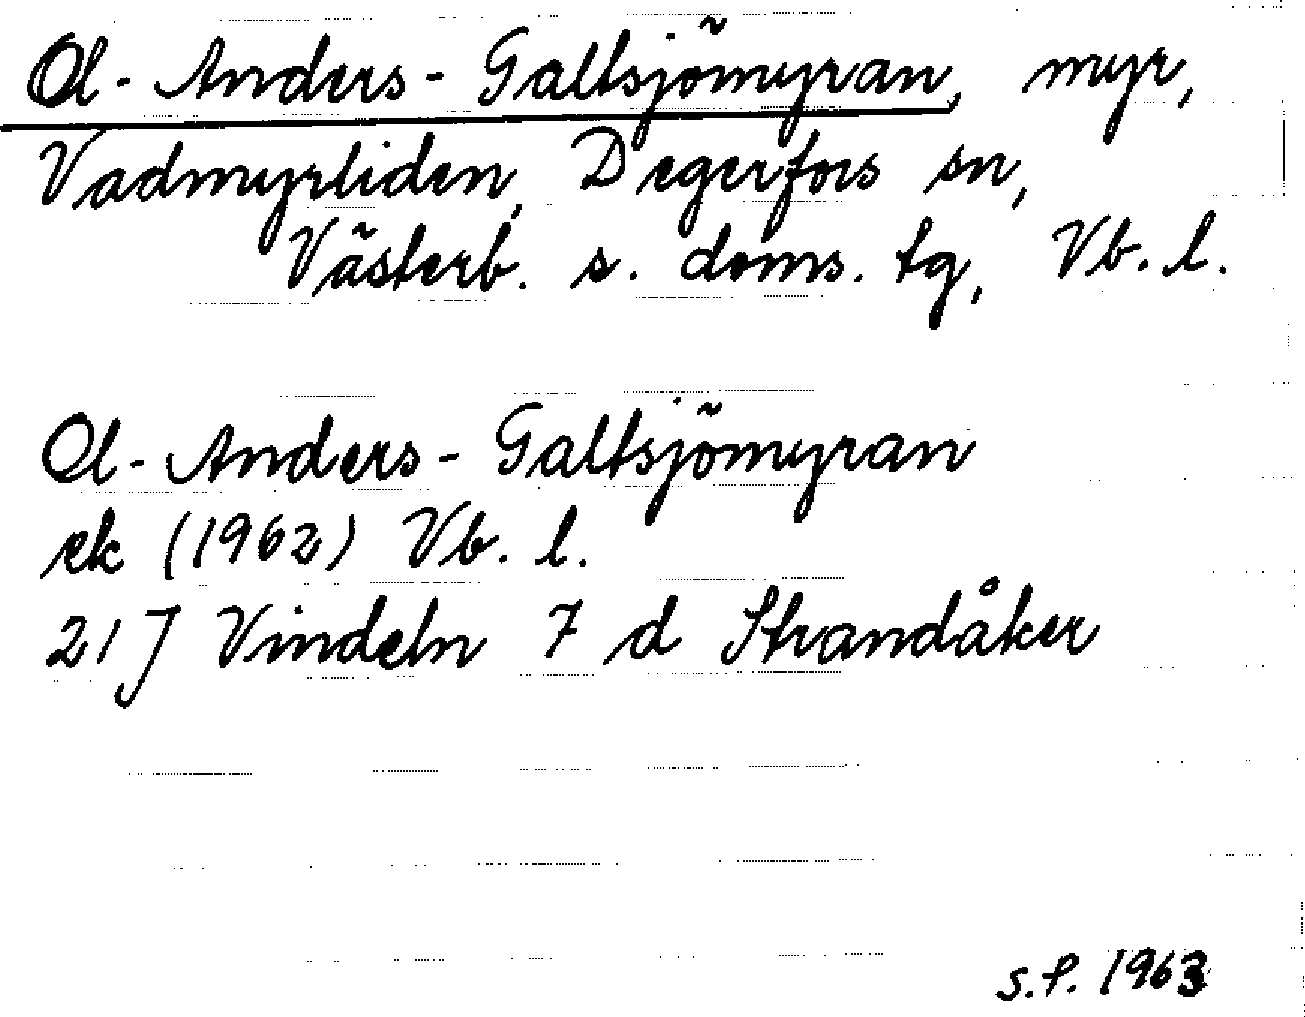 Ol-Anders-Galtsjömyran, myr,
Vadmyrliden, Degerfors sn,
Västerb. s. doms. tg, Vb. l.
Ol-Anders-Galtsjömyran
ek (1962) Vb. l.
21 J Vindeln 7 d Strandåker
S.P. 1963